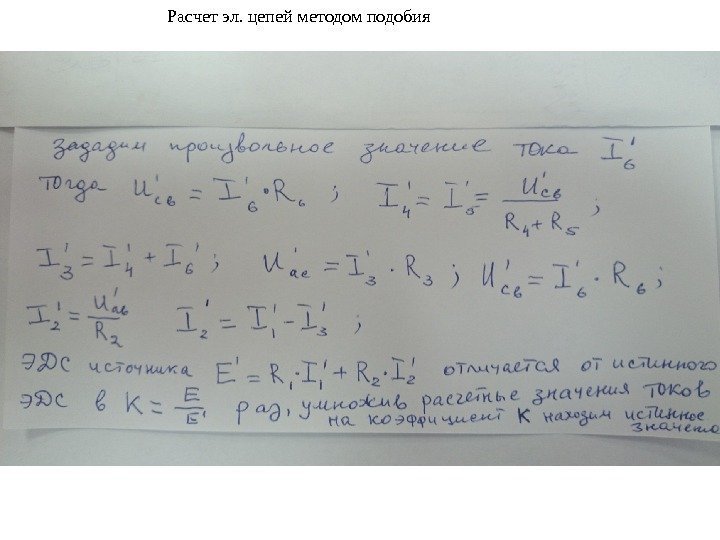 Расчет эл. цепей методом подобия
зададим произвольное значение тока I₆'
тогда U'св = I₆'·R₆ ; I₄' = I₅' = U'св / (R₄+R₅) ;
I₃' = I₄' + I₆' ; U'ас = I₃' · R₃ ; U'св = I₆' · R₆ ;
I₂' = U'ав / R₂ I₂' = I₁' - I₃' ;
ЭДС источника E' = R₁·I₁' + R₂·I₂' отличается от истинного
ЭДС в K = E / E' раз, умножив расчетные значения токов
на коэффициент К находим истинное
значение